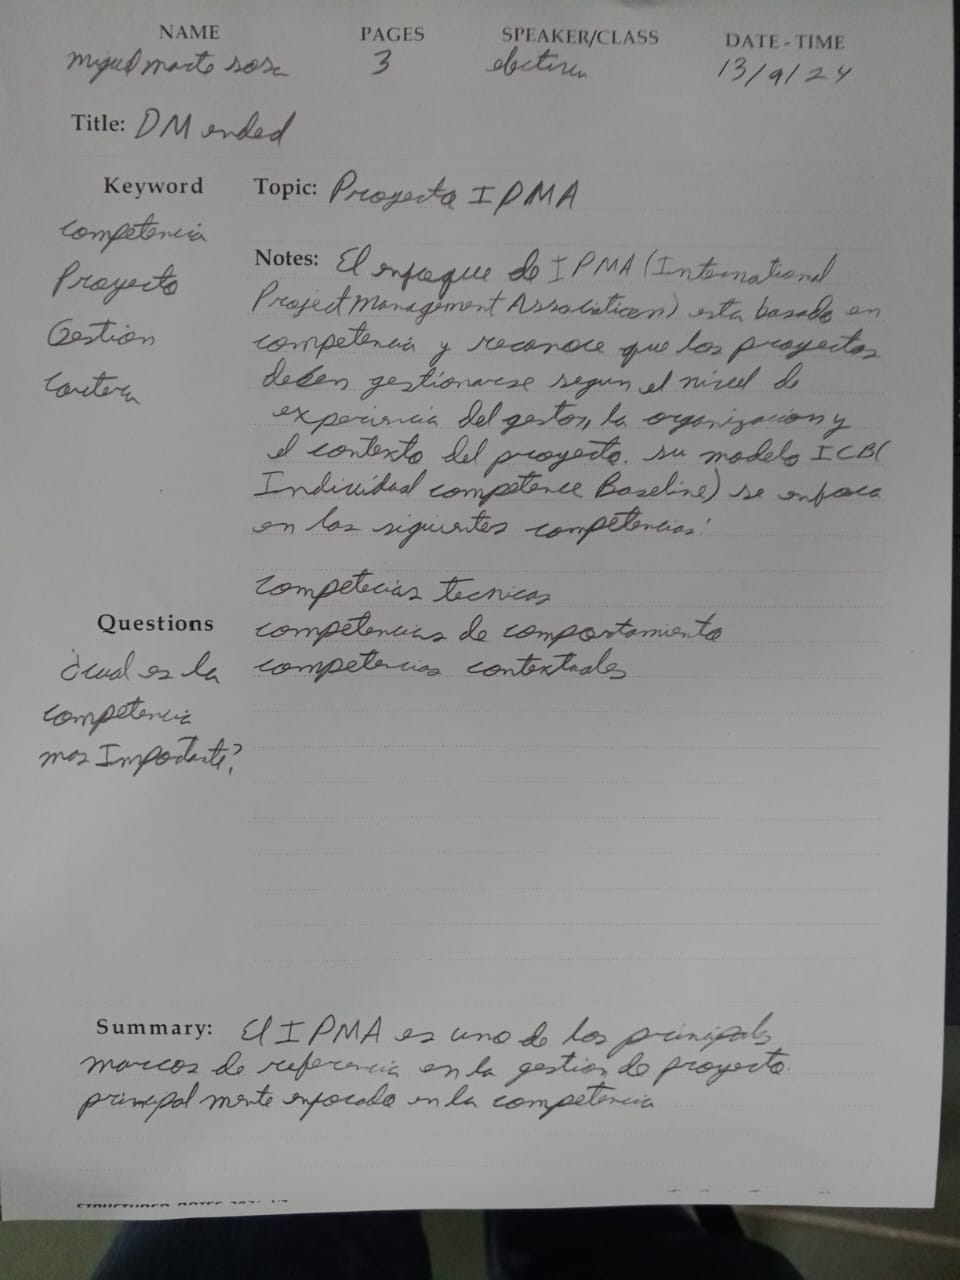 NAME PAGES SPEAKER/CLASS DATE-TIME
miguel marte sosa 3 electiva 13/9/24
Title: DM ended
Keyword
competencia
Proyecto
Gestion
Cartera
Topic: Proyecto IPMA
Notes: El enfoque de IPMA (International
Project Management Association) esta basado en
competencia y reconoce que los proyectos
deben gestionarse segun el nivel de
experiencia del gestor, la organizacion y
el contexto del proyecto. su modelo ICB(
Individual competence Baseline) se enfoca
en las siguientes competencias:
competecias tecnicas
competencias de comportamiento
competencias contextuales
Questions
¿cual es la
competencia
mas Importante?
Summary: El IPMA es uno de los principales
marcos de referencia en la gestion de proyecto.
principal mente enfocado en la competencia